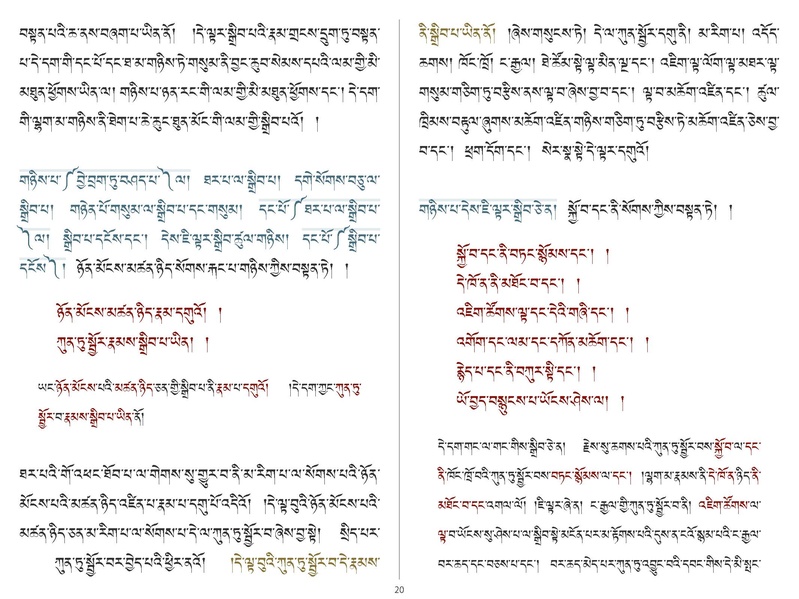 བསྟན་པའི་ཆ་ནས་བཞག་པ་ཡིན་ནོ། །དེ་ལྟར་སྒྲིབ་པའི་རྣམ་གྲངས་དྲུག་ཏུ་བསྟན་
པ་དེ་དག་གི་དང་པོ་དང་ཐ་མ་གཉིས་ཏེ་གསུམ་ནི་བྱང་ཆུབ་སེམས་དཔའི་ལམ་གྱི་མི་
མཐུན་ཕྱོགས་ཡིན་ལ། གཉིས་པ་ཉན་རང་གི་ལམ་གྱི་མི་མཐུན་ཕྱོགས་དང་། དེ་དག་
གི་ལྷག་མ་གཉིས་ནི་ཐེག་པ་ཆེ་ཆུང་ཐུན་མོང་གི་ལམ་གྱི་སྒྲིབ་པའོ། །
གཉིས་པ་༼བྱེ་བྲག་ཏུ་བཤད་པ་༽ལ། ཐར་པ་ལ་སྒྲིབ་པ། དགེ་སོགས་བཅུ་ལ་
སྒྲིབ་པ། གཉེན་པོ་གསུམ་ལ་སྒྲིབ་པ་དང་གསུམ། དང་པོ་༼ཐར་པ་ལ་སྒྲིབ་པ་
༽ལ། སྒྲིབ་པ་དངོས་དང་། དེས་ཇི་ལྟར་སྒྲིབ་ཚུལ་གཉིས། དང་པོ་༼སྒྲིབ་པ་
དངོས་༽། ཉོན་མོངས་མཚན་ཉིད་སོགས་རྐང་པ་གཉིས་ཀྱིས་བསྟན་ཏེ། །
ཉོན་མོངས་མཚན་ཉིད་རྣམ་དགུའོ། །
ཀུན་ཏུ་སྦྱོར་རྣམས་སྒྲིབ་པ་ཡིན། །
ཡང་ཉོན་མོངས་པའི་མཚན་ཉིད་ཅན་གྱི་སྒྲིབ་པ་ནི་རྣམ་པ་དགུའོ། །དེ་དག་ཀྱང་ཀུན་ཏུ་
སྦྱོར་བ་རྣམས་སྒྲིབ་པ་ཡིན་ནོ།
ཐར་པའི་གོ་འཕང་ཐོབ་པ་ལ་གེགས་སུ་གྱུར་བ་ནི་མ་རིག་པ་ལ་སོགས་པའི་ཉོན་
མོངས་པའི་མཚན་ཉིད་འཛིན་པ་རྣམ་པ་དགུ་པོ་འདིའོ། །དེ་ལྟ་བུའི་ཉོན་མོངས་པའི་
མཚན་ཉིད་ཅན་མ་རིག་པ་ལ་སོགས་པ་དེ་ལ་ཀུན་ཏུ་སྦྱོར་བ་ཞེས་བྱ་སྟེ། སྲིད་པར་
ཀུན་ཏུ་སྦྱོར་བར་བྱེད་པའི་ཕྱིར་ནའོ། །དེ་ལྟ་བུའི་ཀུན་ཏུ་སྦྱོར་བ་དེ་རྣམས་
ནི་སྒྲིབ་པ་ཡིན་ནོ། །ཞེས་གསུངས་ཏེ། དེ་ལ་ཀུན་སྦྱོར་དགུ་ནི། མ་རིག་པ། འདོད་
ཆགས། ཁོང་ཁྲོ། ང་རྒྱལ། ཐེ་ཚོམ་སྟེ་ལྟ་མིན་ལྔ་དང་། འཇིག་ལྟ་ལོག་ལྟ་མཐར་ལྟ་
གསུམ་གཅིག་ཏུ་བརྩིས་ནས་ལྟ་བ་ཞེས་བྱ་བ་དང་། ལྟ་བ་མཆོག་འཛིན་དང་། ཚུལ་
ཁྲིམས་བརྟུལ་ཞུགས་མཆོག་འཛིན་གཉིས་གཅིག་ཏུ་བརྩིས་ཏེ་མཆོག་འཛིན་ཅེས་བྱ་
བ་དང་། ཕྲག་དོག་དང་། སེར་སྣ་སྟེ་དེ་ལྟར་དགུའོ།
གཉིས་པ་དེས་ཇི་ལྟར་སྒྲིབ་ཅེ་ན། སྐྱོ་བ་དང་ནི་སོགས་ཀྱིས་བསྟན་ཏེ། །
སྐྱོ་བ་དང་ནི་བཏང་སྙོམས་དང་། །
དེ་ཁོ་ན་ནི་མཐོང་བ་དང་། །
འཇིག་ཚོགས་ལྟ་དང་དེའི་གཞི་དང་། །
འགོག་དང་ལམ་དང་དཀོན་མཆོག་དང་། །
རྙེད་པ་དང་ནི་བཀུར་སྟི་དང་། །
ཡོ་བྱད་བསྙུངས་པ་ཡོངས་ཤེས་ལ། །
དེ་དག་གང་ལ་གང་གིས་སྒྲིབ་ཅེ་ན། རྗེས་སུ་ཆགས་པའི་ཀུན་ཏུ་སྦྱོར་བས་སྐྱོ་བ་ལ་དང་
ནི་ཁོང་ཁྲོ་བའི་ཀུན་ཏུ་སྦྱོར་བས་བཏང་སྙོམས་ལ་དང་། །ལྷག་མ་རྣམས་ནི་དེ་ཁོ་ན་ཉིད་ནི་
མཐོང་བ་དང་འགལ་ལོ། །ཇི་ལྟར་ཞེ་ན། ང་རྒྱལ་གྱི་ཀུན་ཏུ་སྦྱོར་བ་ནི། འཇིག་ཚོགས་ལ་
ལྟ་བ་ཡོངས་སུ་ཤེས་པ་ལ་སྒྲིབ་སྟེ་མངོན་པར་མ་རྟོགས་པའི་དུས་ན་ངའོ་སྙམ་པའི་ང་རྒྱལ་
བར་ཆད་དང་བཅས་པ་དང་། བར་ཆད་མེད་པར་ཀུན་ཏུ་འབྱུང་བའི་དབང་གིས་དེ་མི་སྤང་
20